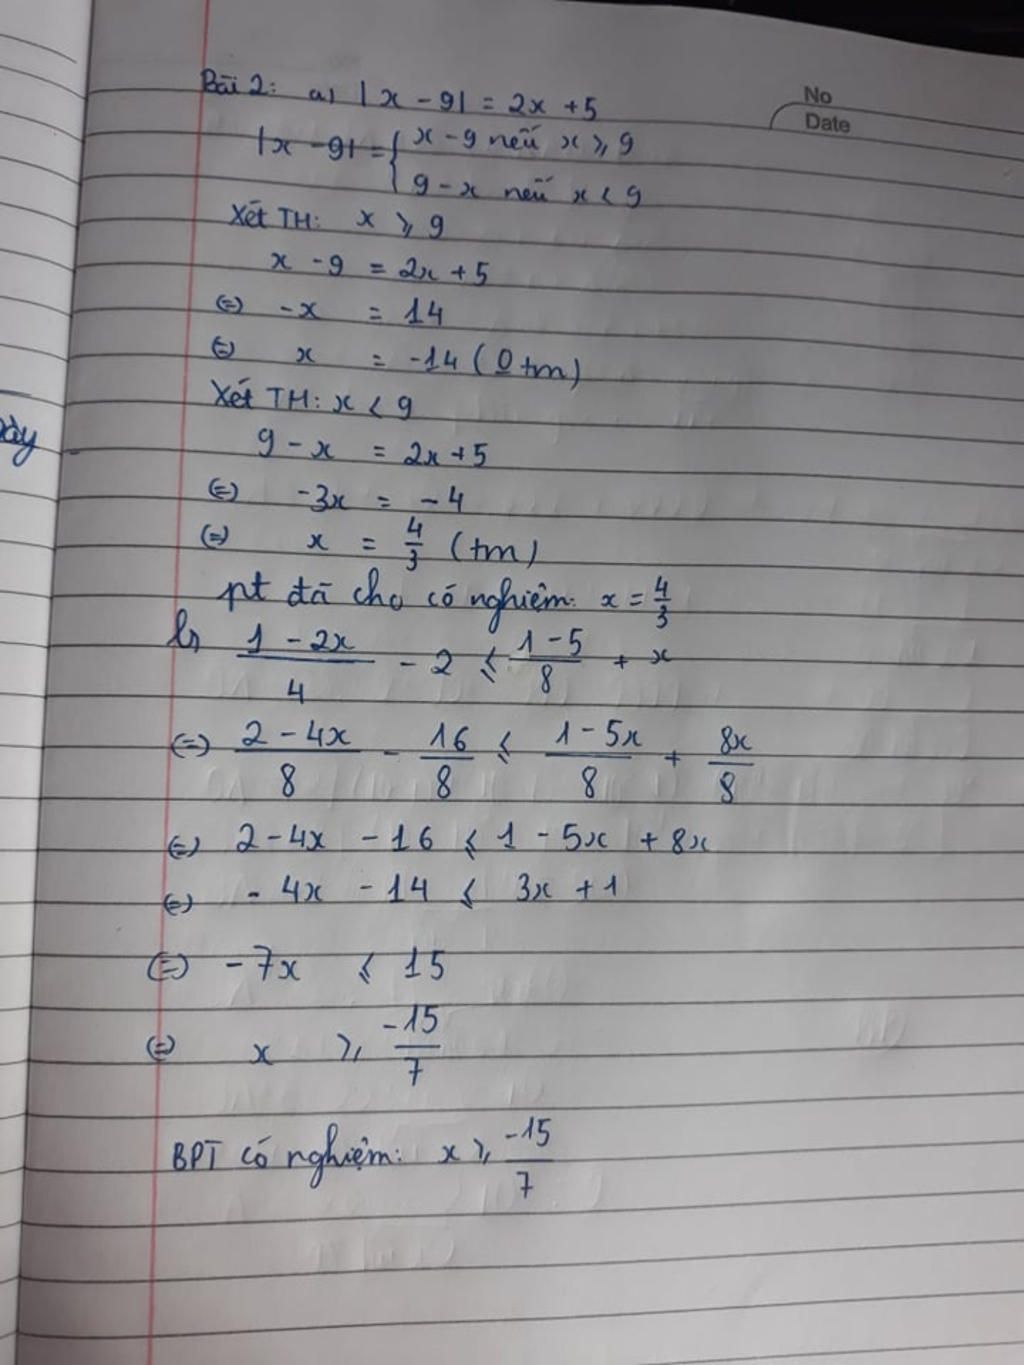 No
Date
Bài 2: a) |x - 9| = 2x + 5
|x - 9| = { x - 9 nếu x ⩾ 9
9 - x nếu x < 9
Xét TH: x ⩾ 9
x - 9 = 2x + 5
(=) -x = 14
(=) x = -14 (0 tm)
Xét TH: x < 9
9 - x = 2x + 5
(=) -3x = -4
(=) x = 4/3 (tm)
pt đã cho có nghiệm: x = 4/3
b) (1 - 2x)/4 - 2 ⩽ (1 - 5)/8 + x
(=) (2 - 4x)/8 - 16/8 ⩽ (1 - 5x)/8 + 8x/8
(=) 2 - 4x - 16 ⩽ 1 - 5x + 8x
(=) - 4x - 14 ⩽ 3x + 1
(=) - 7x ⩽ 15
(=) x ⩾ -15/7
BPT có nghiệm: x ⩾ -15/7